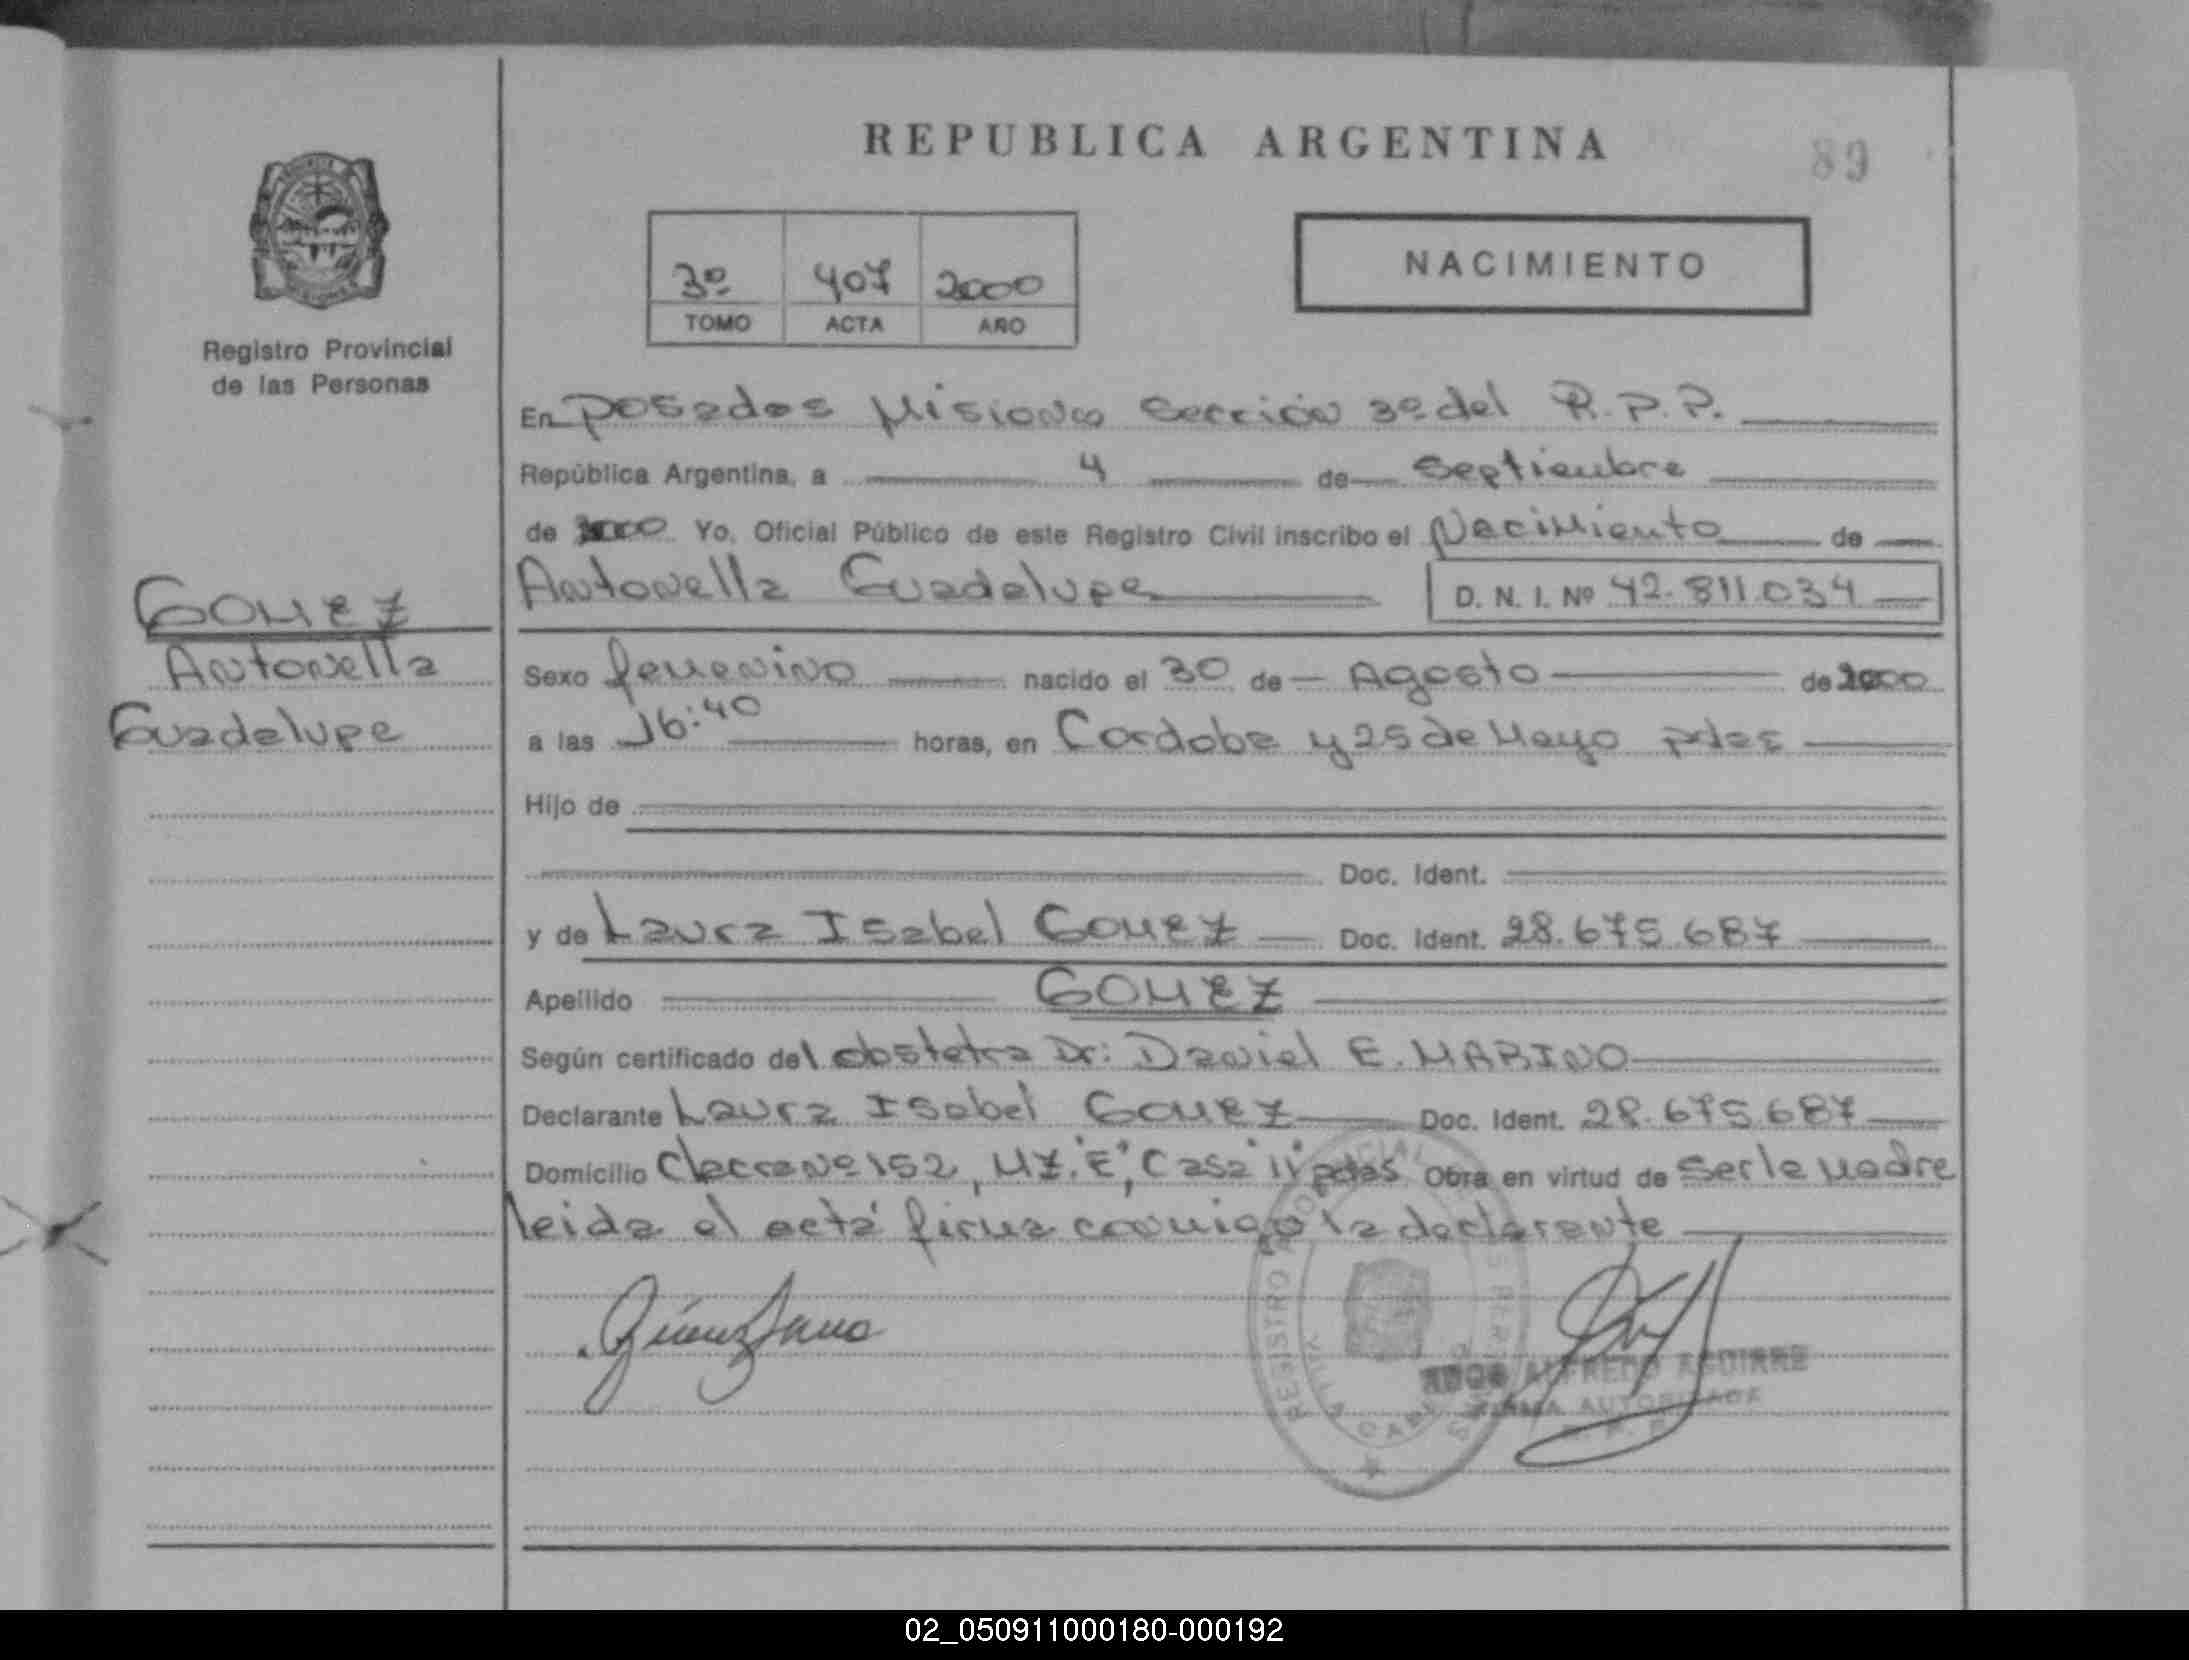 REPUBLICA ARGENTINA
89
3º 407 2000
TOMO ACTA AÑO
NACIMIENTO
Registro Provincial
de las Personas
En Posadas Misiones Sección 3º del R.P.P.
República Argentina, a 4 de Septiembre
de 2000 Yo, Oficial Público de este Registro Civil inscribo el Nacimiento de
Antonella Guadalupe D. N. I. Nº 42.811.034
GOMEZ
Antonella
Guadalupe
Sexo femenino nacido el 30 de Agosto de 2000
a las 16:40 horas, en Cordoba y 25 de Mayo pdas
Hijo de
Doc. Ident.
y de Laura Isabel GOMEZ Doc. Ident. 28.675.687
Apellido GOMEZ
Según certificado del obstetra Dr: Daniel E. MARINO
Declarante Laura Isabel GOMEZ Doc. Ident. 28.675.687
Domicilio Chacra Nº 152, Mz. "E", Casa "11" pdas Obra en virtud de ser la madre
leida el acta firma conmigo la declarante
REGISTRO PROVINCIAL
ALFREDO AGUIRRE
FIRMA AUTORIZADA
R. P. P.
02_050911000180-000192